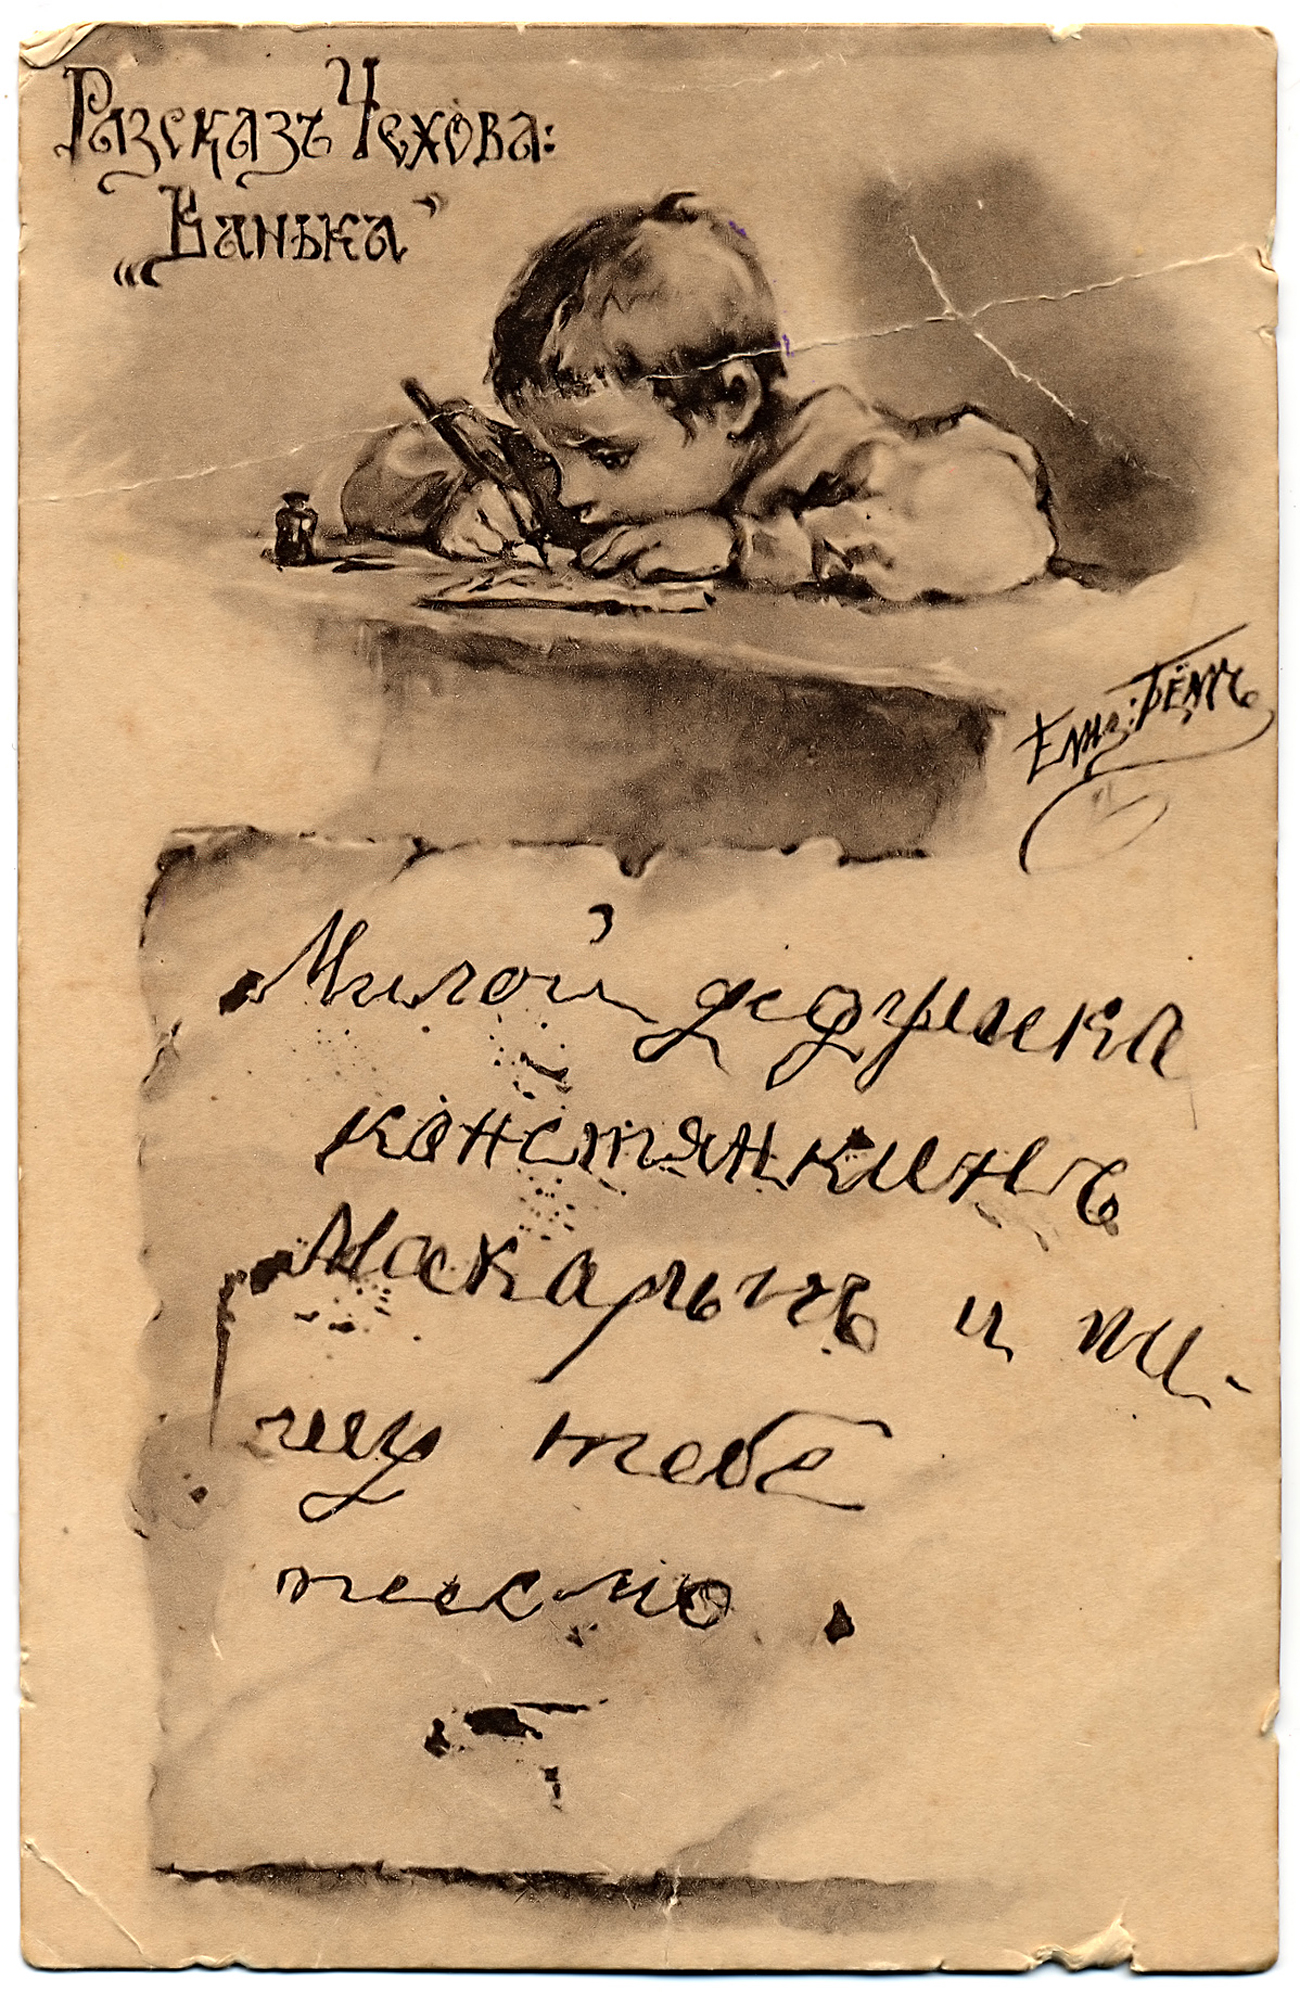 Разсказъ Чехова:
„Ванька”
Елиз: Бёмъ
Милой дедушка
константинъ
Макарычъ и пи-
шу тебе
писмо.